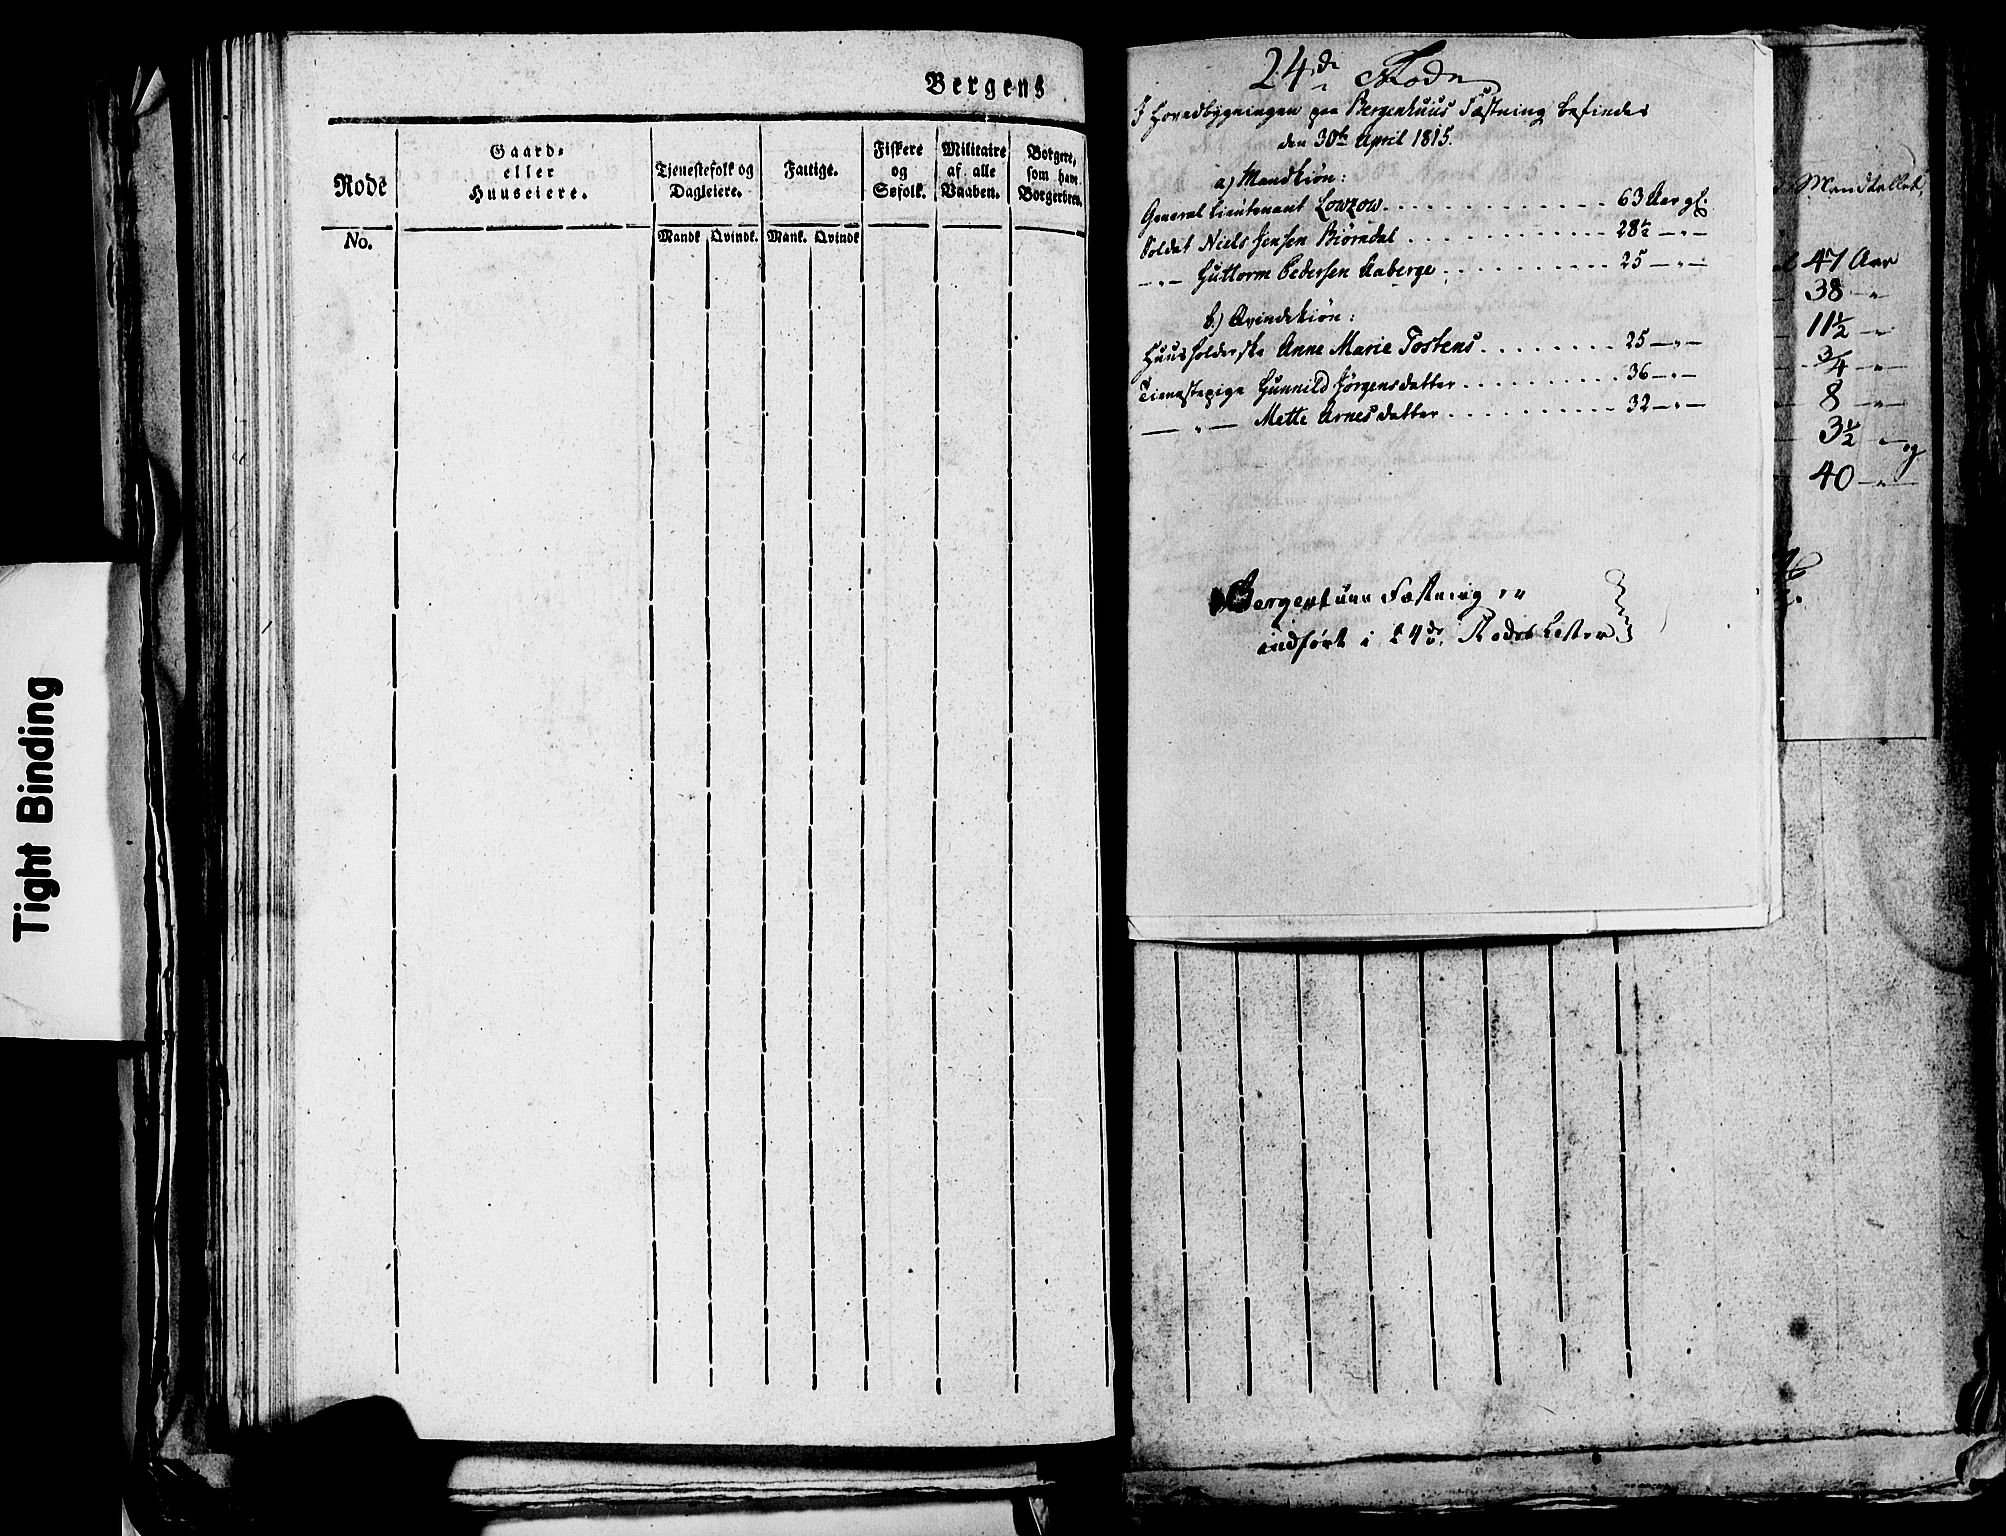 Tight Binding
Bergens
Rode
No.
Gaard-
eller
Huuseiere.
Tjenestefolk og
Dagleiere.
Mandk Qvindk.
Fattige.
Mank. Qvindk
Fiskere
og
Søfolk.
Militaire
af alle
Vaaben.
Borgere,
som have
Borgerbrev.
24de Rode
I Hovedbygningen paa Bergenhuus Fæstning befindes
den 30te April 1815.
a) Mandkiön:
General Lieutenant Lowzow. . . . . . . . . . . . . 63 Aar gl.
Soldat Niels Jensen Biörndal . . . . . . . . . . . 28½ — " —
— " — Guttorm Pedersen Aaberge . . . . . . . . . . . 25 — " —
b.) Qvindekiön:
Huusholderske Anne Marie Tostens . . . . . . . . 25 — " —
Tienestepige Gunnild Jörgensdatter . . . . . . . . . . 36 — " —
— " — Mette Arnesdatter . . . . . . . . . . 32 — " —
Bergenhuus Fæstning
indført i 24de Rodes Lister
Mandtallet,
47 Aar
38 — "
11½ — "
¾ — "
8 — "
3½ — " og
40 — " —